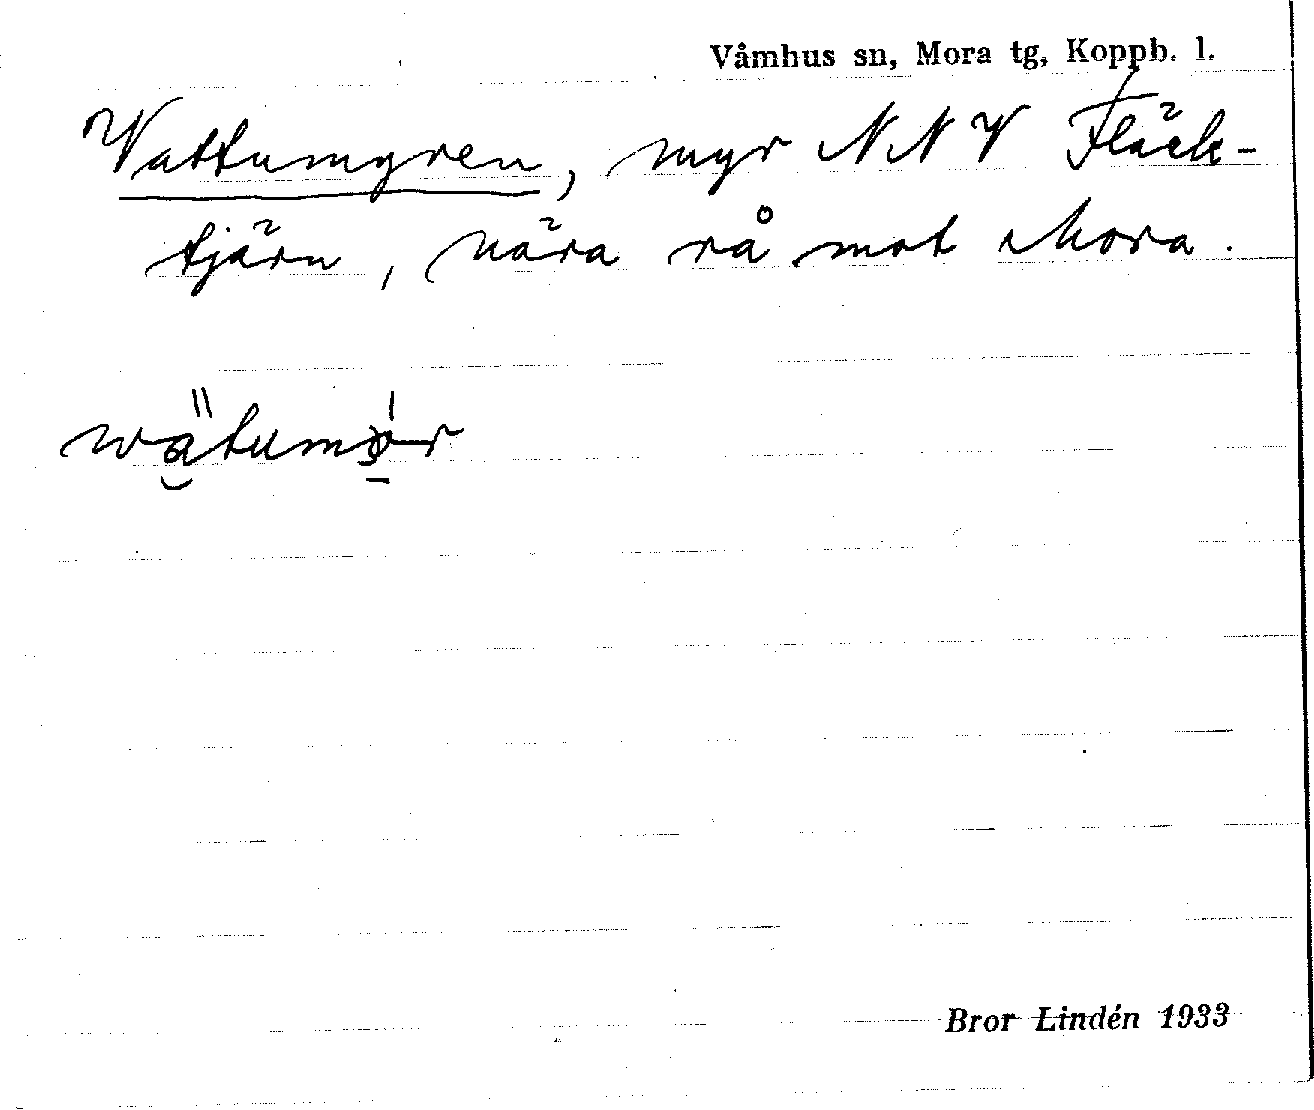 Våmhus sn, Mora tg, Koppb. l.
Vattumyren, myr NNV Fläck-
tjärn, nära rå mot Mora.
Bror Lindén 1933